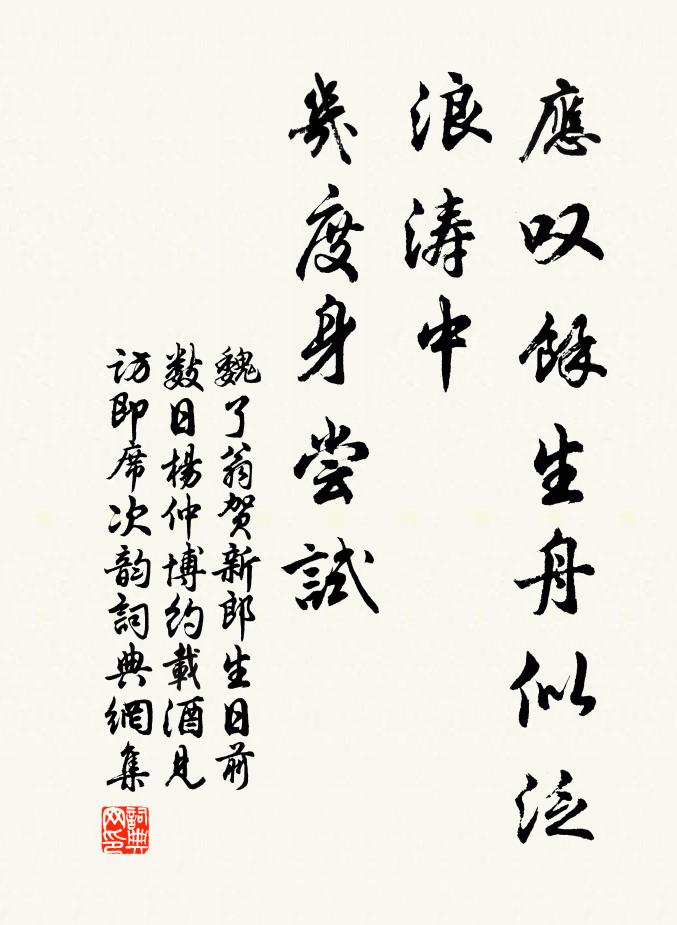 應叹餘生舟似泛
浪涛中
幾度身尝試
魏了翁贺新郎生日前
数日楊仲博约載酒見
訪即席次韵詞典網集
詞典网印